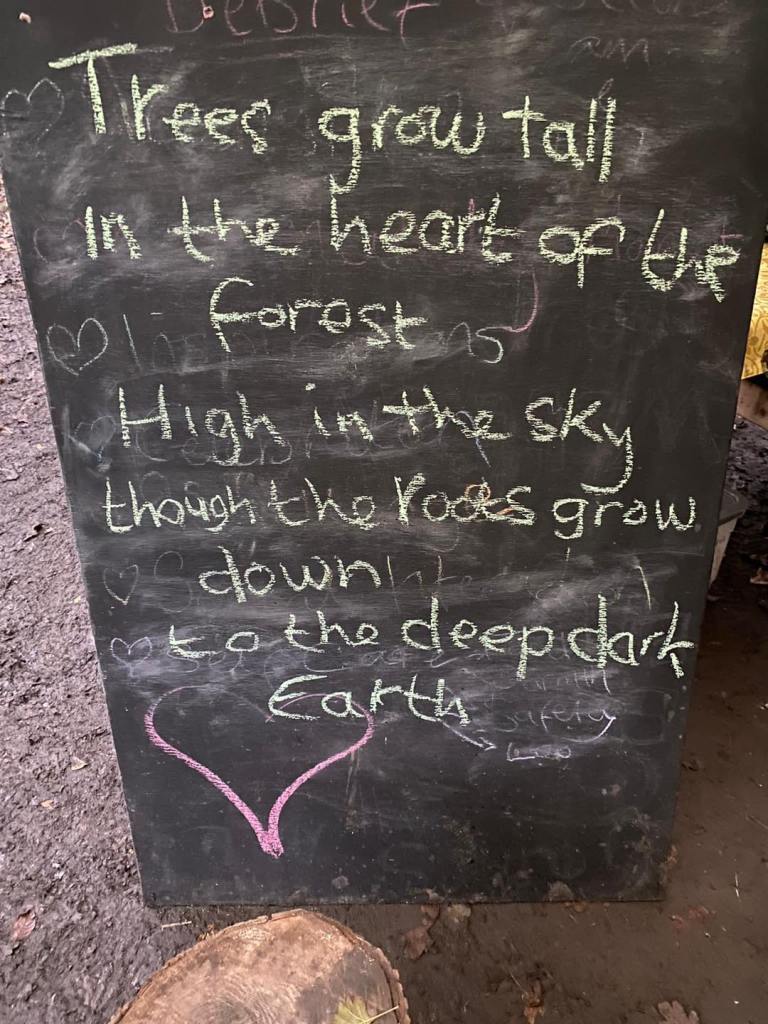 Debrief
am
Trees grow tall
in the heart of the
forost
High in the sky
though the roots grow
down
to the deep dark
Earth
Safety